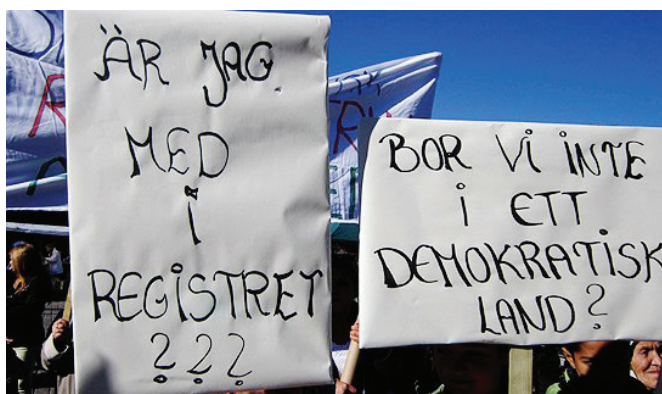 ÄR JAG
MED
i
REGISTRET
???
BOR Vi iNTE
i ETT
DEMOKRATISK
LAND?